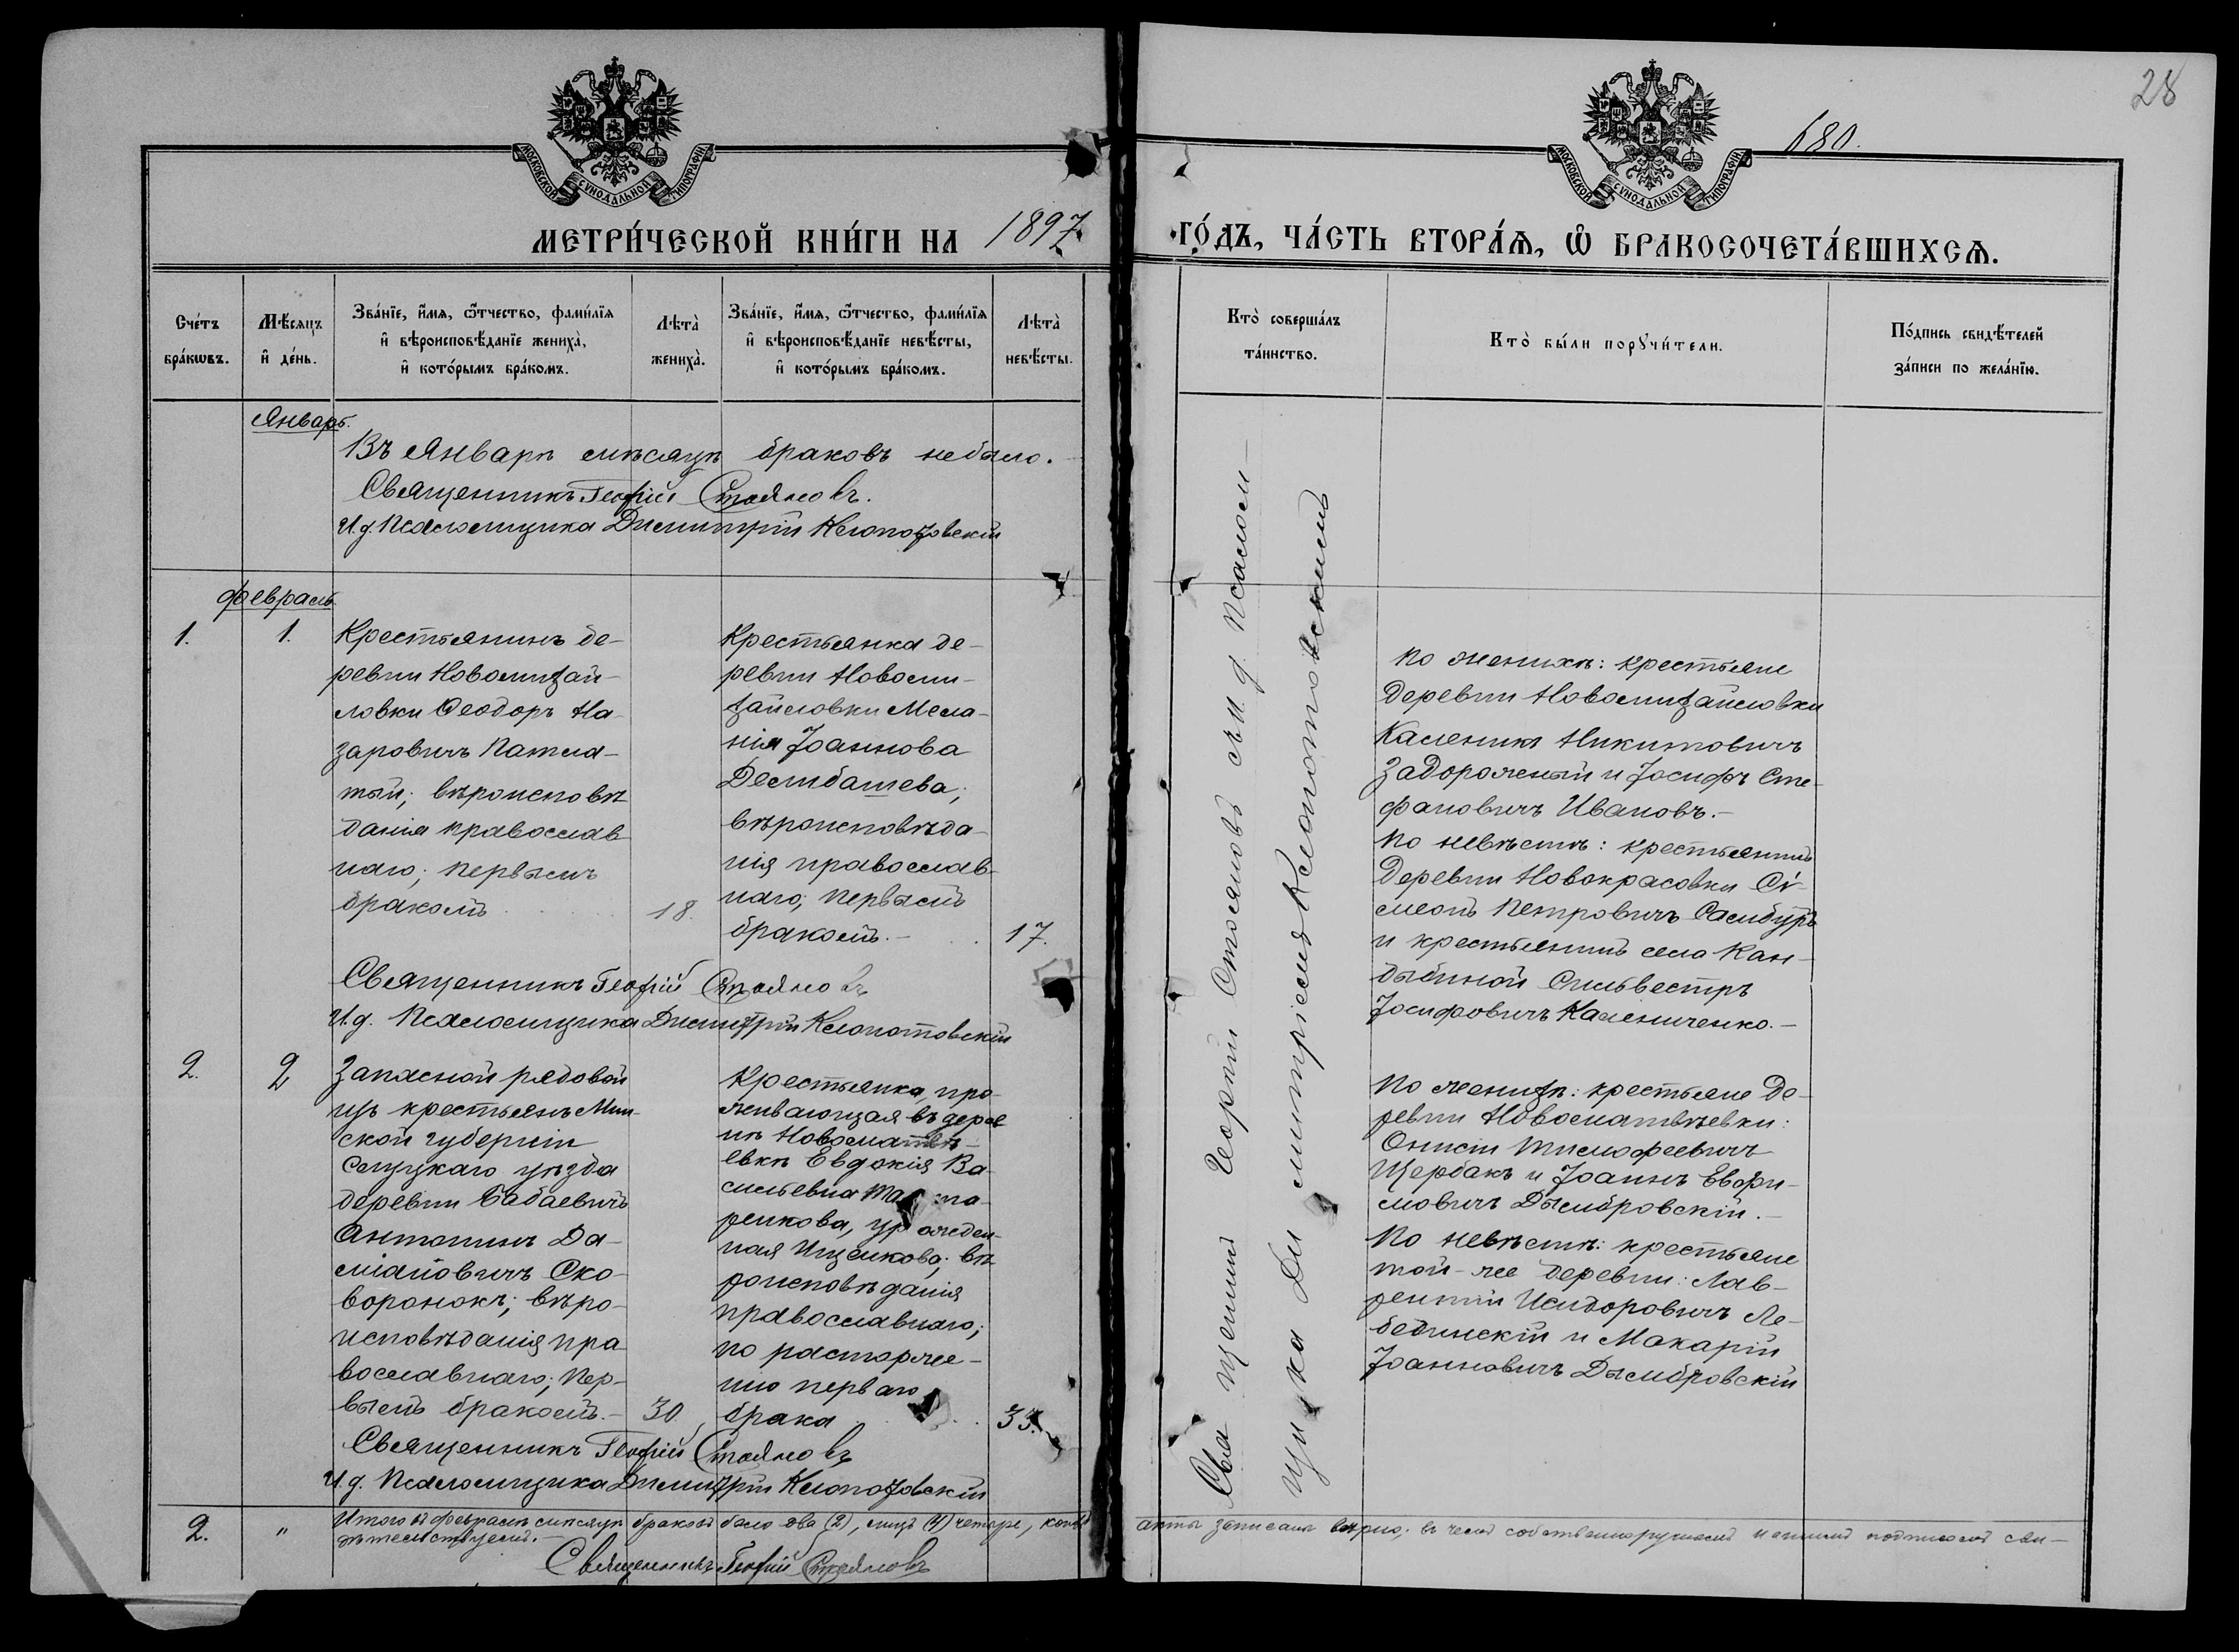 28
680.
МОСКОВСКОЙ СѴНОДАЛЬНОЙ ТИПОГРАФІИ
МОСКОВСКОЙ СѴНОДАЛЬНОЙ ТИПОГРАФІИ
МЕТРИ́ЧЕСКОЙ КНИ́ГИ НА 1897
ГО́ДЪ, ЧА́СТЬ ВТОРА́Ѧ, Ѽ БРАКОСОЧЕТА́ВШИХСѦ.
Сче́тъ бра́кѡвъ.
Мѣ́сяцъ и҆ де́нь.
Зва́нїе, и҆́мя, ѻ҆́тчество, фами́лїя и҆ вѣроисповѣ́данїе жениха̀, и҆ кото́рымъ бра́комъ.
Лѣта̀ жениха̀.
Зва́нїе, и҆́мя, ѻ҆́тчество, фами́лїя и҆ вѣроисповѣ́данїе невѣ́сты, и҆ кото́рымъ бра́комъ.
Лѣта̀ невѣ́сты.
Кто̀ соверша́лъ та́инство.
Кто̀ бы́ли порꙋчи́тели.
По́дпись свидѣ́телей за́писи по жела́нїю.
Январь.
Въ Январѣ мѣсяцѣ браковъ небыло.
Священникъ Георгій Стояновъ.
И. д. Псаломщика Димитрій Клопотовскій
Февраль
1.
1.
Крестьянинъ де-
ревни Новомихай-
ловки Ѳеодоръ На-
заровичъ Патла-
тый; вѣроисповѣ
данія православ
наго; первымъ
бракомъ
18.
Крестьянка де-
ревни Новоми-
хайловки Мела-
нія Іоаннова
Делибашева;
вѣроисповѣда-
нія православ-
наго; первымъ
бракомъ.-
17.
Священникъ Георгій Стояновъ
И. д. Псаломщика Димитрій Клопотовскій
По женихѣ: крестьяне
деревни Новомихайловки
Каленикъ Никитовичъ
Задорожный и Іосифъ Сте-
фановичъ Ивановъ.-
По невѣстѣ: крестьянинъ
деревни Новокрасовки Сѵ-
меонъ Петровичъ Самбуръ
и крестьянинъ села Кан-
дыбиной Сильвестръ
Іосифовичъ Калениченко.-
2.
2
Запасной рядовой
изъ крестьянъ Мин-
ской губерніи
Слуцкаго уѣзда
деревни Бабаевичъ
Антонинъ Да-
міановичъ Ско-
воронокъ; вѣро-
исповѣданія пра
вославнаго; пер-
вымъ бракомъ.-
30
Крестьянка, про-
живающая въ дерев
нѣ Новоматвѣ-
евкѣ Евдокія Ва-
сильевна
ренкова, урожден-
ная Ищенкова; вѣ
роисповѣданія
православнаго;
по расторже-
нію перваго
брака
33.
Священникъ Георгій Стояновъ
И. д. Псаломщика Димитрій Клопотовскій
По женихѣ: крестьяне де-
ревни Новоматвѣевки:
Онисій Тимоѳеевичъ
Щербакъ и Іоаннъ Евфи-
мовичъ Дымбровскій.-
По невѣстѣ: крестьяне
той-же деревни: Лав-
рентій Исидоровичъ Ле-
бединскій и Макарій
Іоанновичъ Дымбровскій
Священникъ Георгій Стояновъ съ И. д. Псалом-
щика Димитріемъ Клопотовскимъ
2.
"
Итого въ февралѣ мѣсяцѣ браковъ было два (2), лицъ (4) четыре, коихъ акты записаны вѣрно; въ чемъ собственноручнымъ нашимъ подписомъ сви-
дѣтельствуемъ.-
Священникъ Георгій Стояновъ